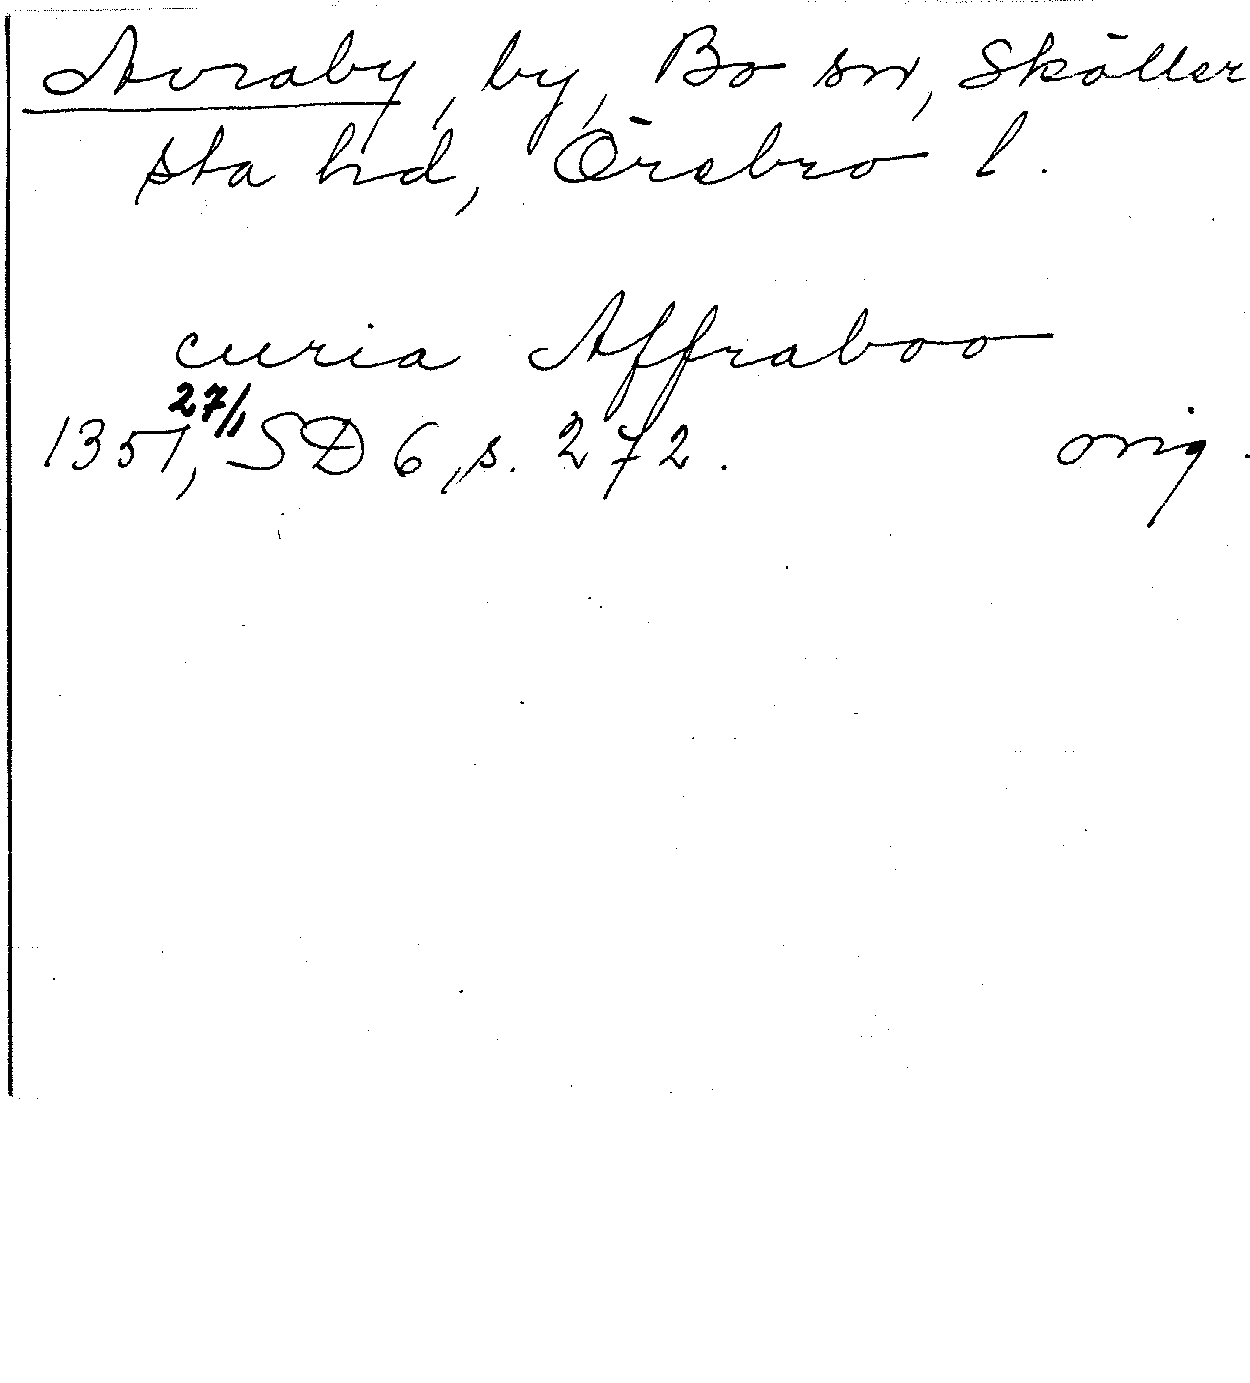 Avraby, by, Bo sn, Sköller
sta hd, Örebro l.
curia Affraboo
27/1
1351, SD 6, s. 272. orig.